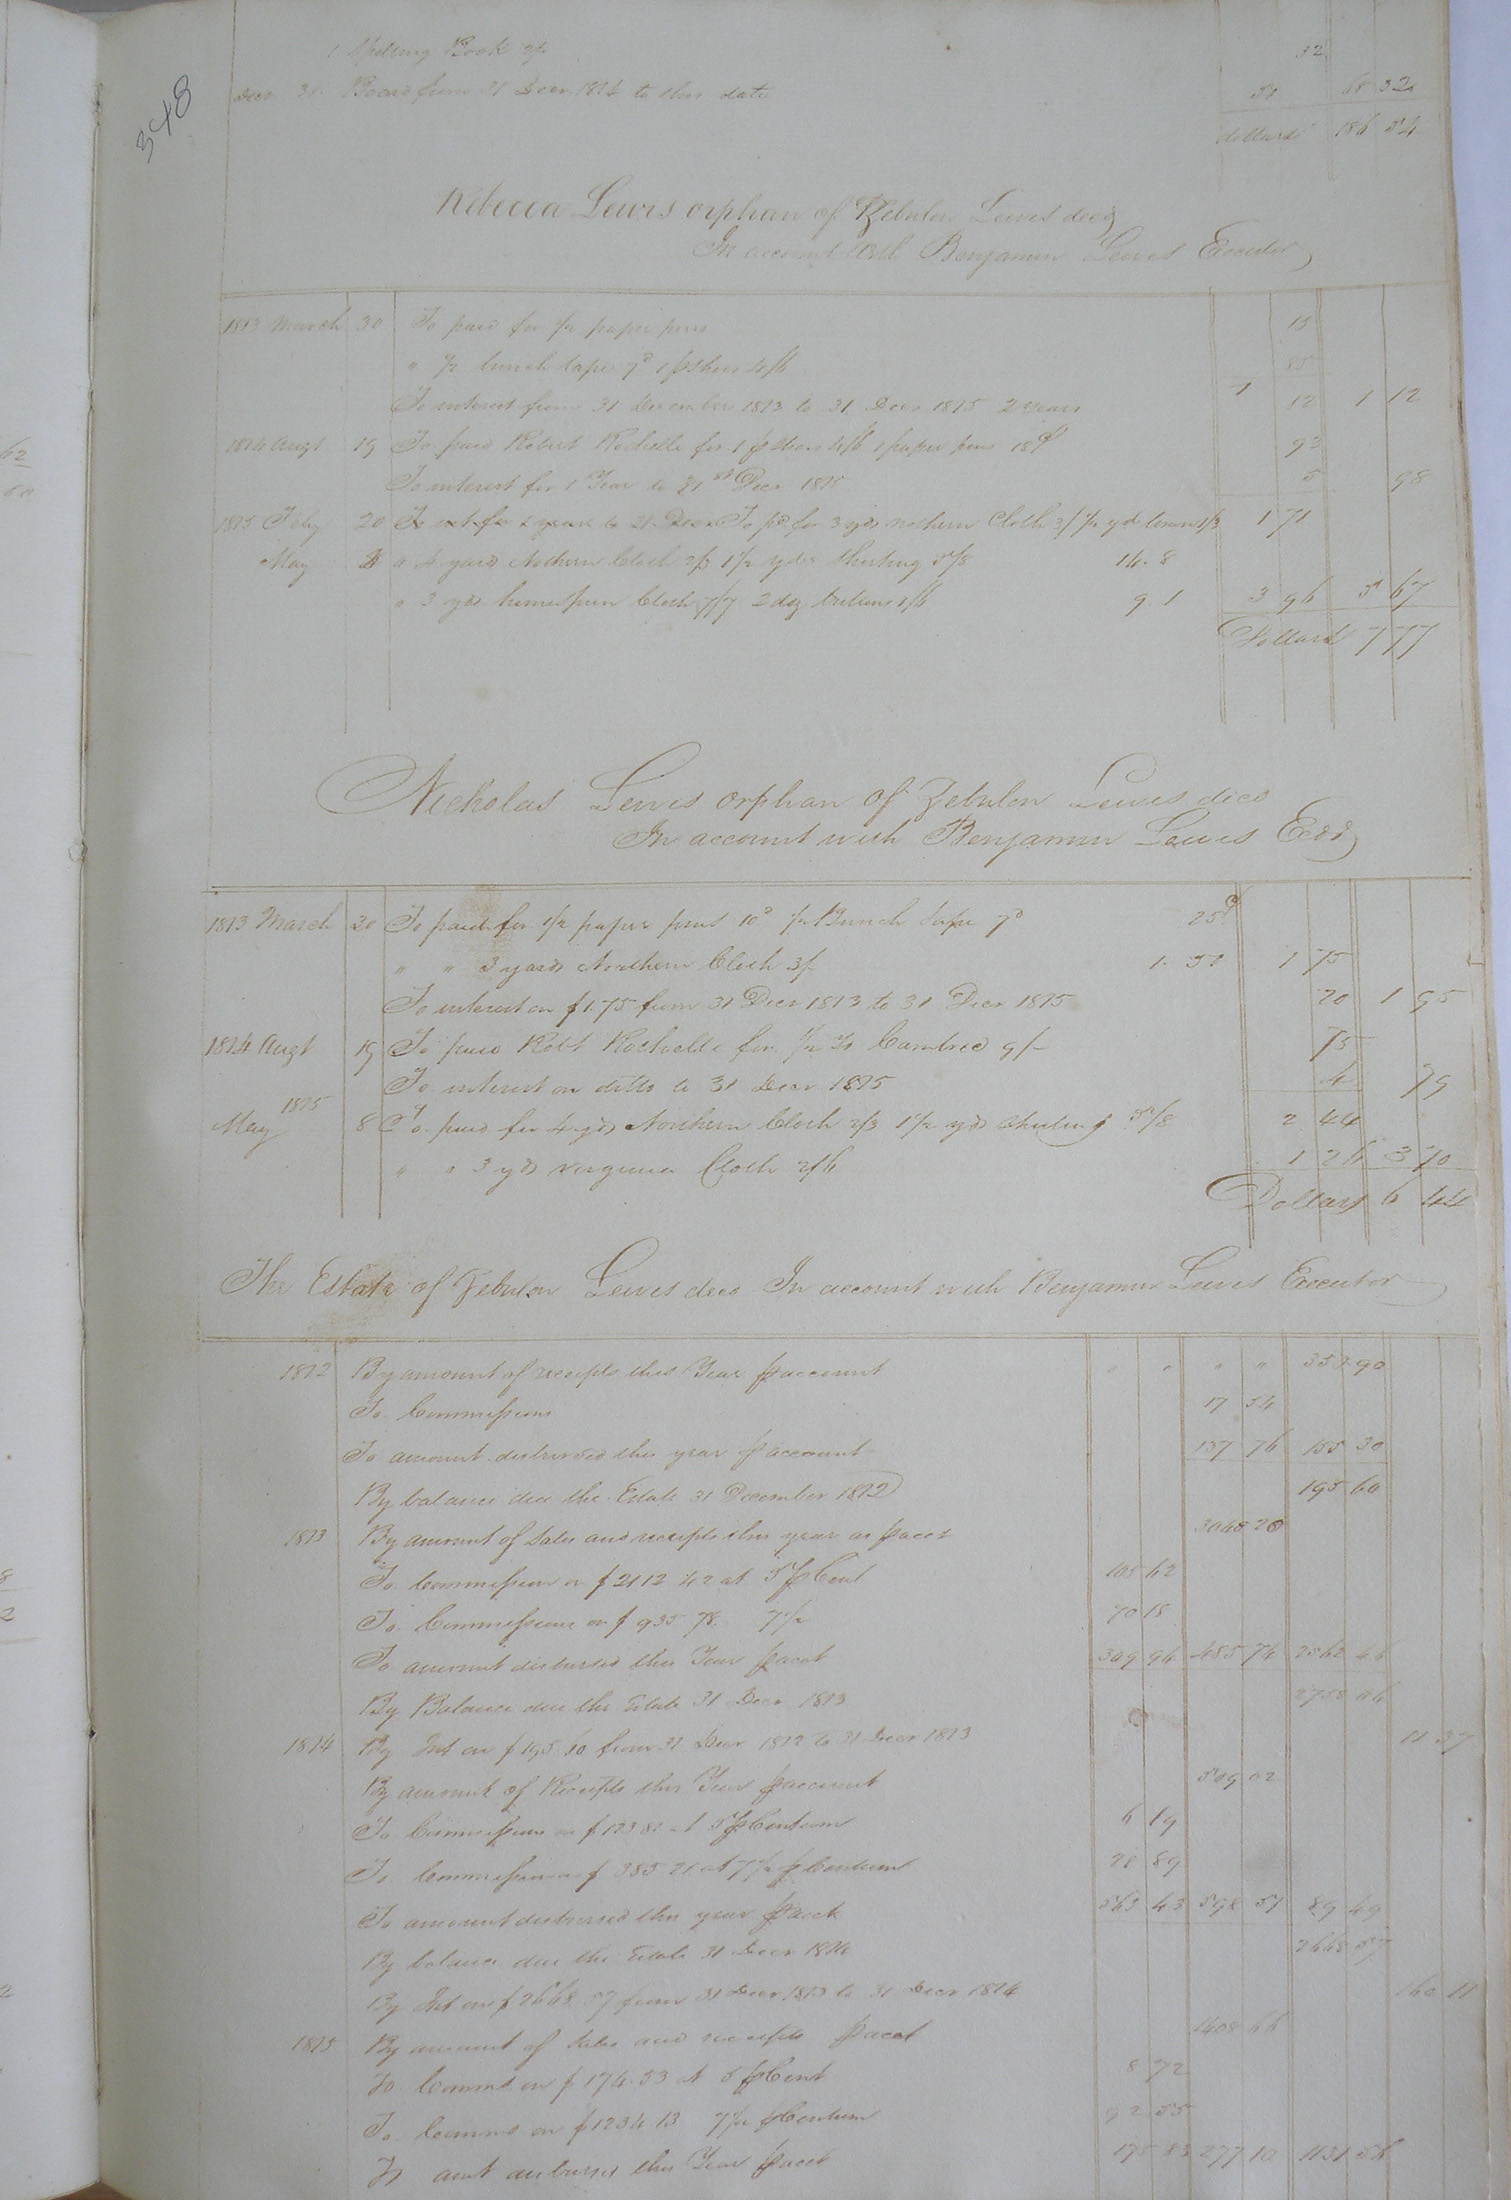 348
1 Spelling Book 2/ 32
Decr 31. Board from 31 Decr 1814 to this date 50 68 32
dollars 186 54
Rebecca Lewis orphan of Zebulon Lewis decd
In account with Benjamin Lewis Executor
1813 March 30 To paid for 1/2 paper pins 15
" 1/2 bunch tape 7d 1 pr shoes 4/6 85
To interest from 31 December 1813 to 31 Decr 1815 2 years 12 1 12
1814 Augt 19 To paid Robert Rochelle for 1 pr shoes 4/6 1 paper pins 18d 93
To interest for 1 Year to 31st Decr 1815 5 98
1815 Feby 20 To pd for 3 yds Northern Cloth 3/ 1/2 yd linen 1/3 1 71
May " 4 yards Northern Cloth 2/3 1 1/2 yds Shirting 3/8 14.8
" 3 yds homespun Cloth 2 doz buttons 9.1 3 96 5 67
Dollars 7 77
Nicholas Lewis orphan of Zebulon Lewis decd
In account with Benjamin Lewis Exor
1813 March 30 To paid for 1/2 paper pins 10d 1/2 Bunch tape 7d 25
" " 3 yards Northern Cloth 3/ 1.50 1 75
To interest on $1.75 from 31 Decr 1813 to 31 Decr 1815 20 1 95
1814 Augt 19 To paid Robt Rochelle for 1/2 yd Cambric 9/- 75
To interest on ditto to 31 Decr 1815 4 79
1815
May 8 To paid for 4 yds Northern Cloth 2/3 1 1/2 yds Sheeting 2 44
" " 3 yds virginia Cloth 2/6 1 26 3 70
Dollars 6 44
The Estate of Zebulon Lewis decd In account with Benjamin Lewis Executor
1812 By amount of receipts this Year pr account " " " " 350 90
To Commissions 17 54
To amount disbursed this year pr account 137 76 155 30
By balance due the Estate 31 December 1812 195 60
1813 By amount of Sales and receipts this year as pr acct 3048 20
To Commission on $2112.42 at 5 pr Cent 105 62
To Commissions on $935.78 7 1/2 70 18
To amount disbursed this Year pr acct 309 94 485 74 2562 46
By Balance due the Estate 31 Decr 1813 2758 06
1814 By Int on $195.60 from 31 Decr 1812 to 31 Decr 1813 11 37
By amount of Receipts this Year pr account 509 02
To Commissions on $123.81 at 5 pr Centum 6 19
To Commission on $385.21 at 7 1/2 pr Centum 28 89
To amount disbursed this year pr acct 563 43 598 51 89 49
By balance due the Estate 31 Decr 1814 2668 57
By Int on $2668.57 from 31 Decr 1813 to 31 Decr 1814 160 11
1815 By amount of Sales and receipts pr acct 1408 66
To Comms on $174.53 at 5 pr Cent 8 72
To Comms on $1234.13 7 1/2 pr Centum 92 55
To amt disbursed this Year pr acct 175 83 277 10 1131 56